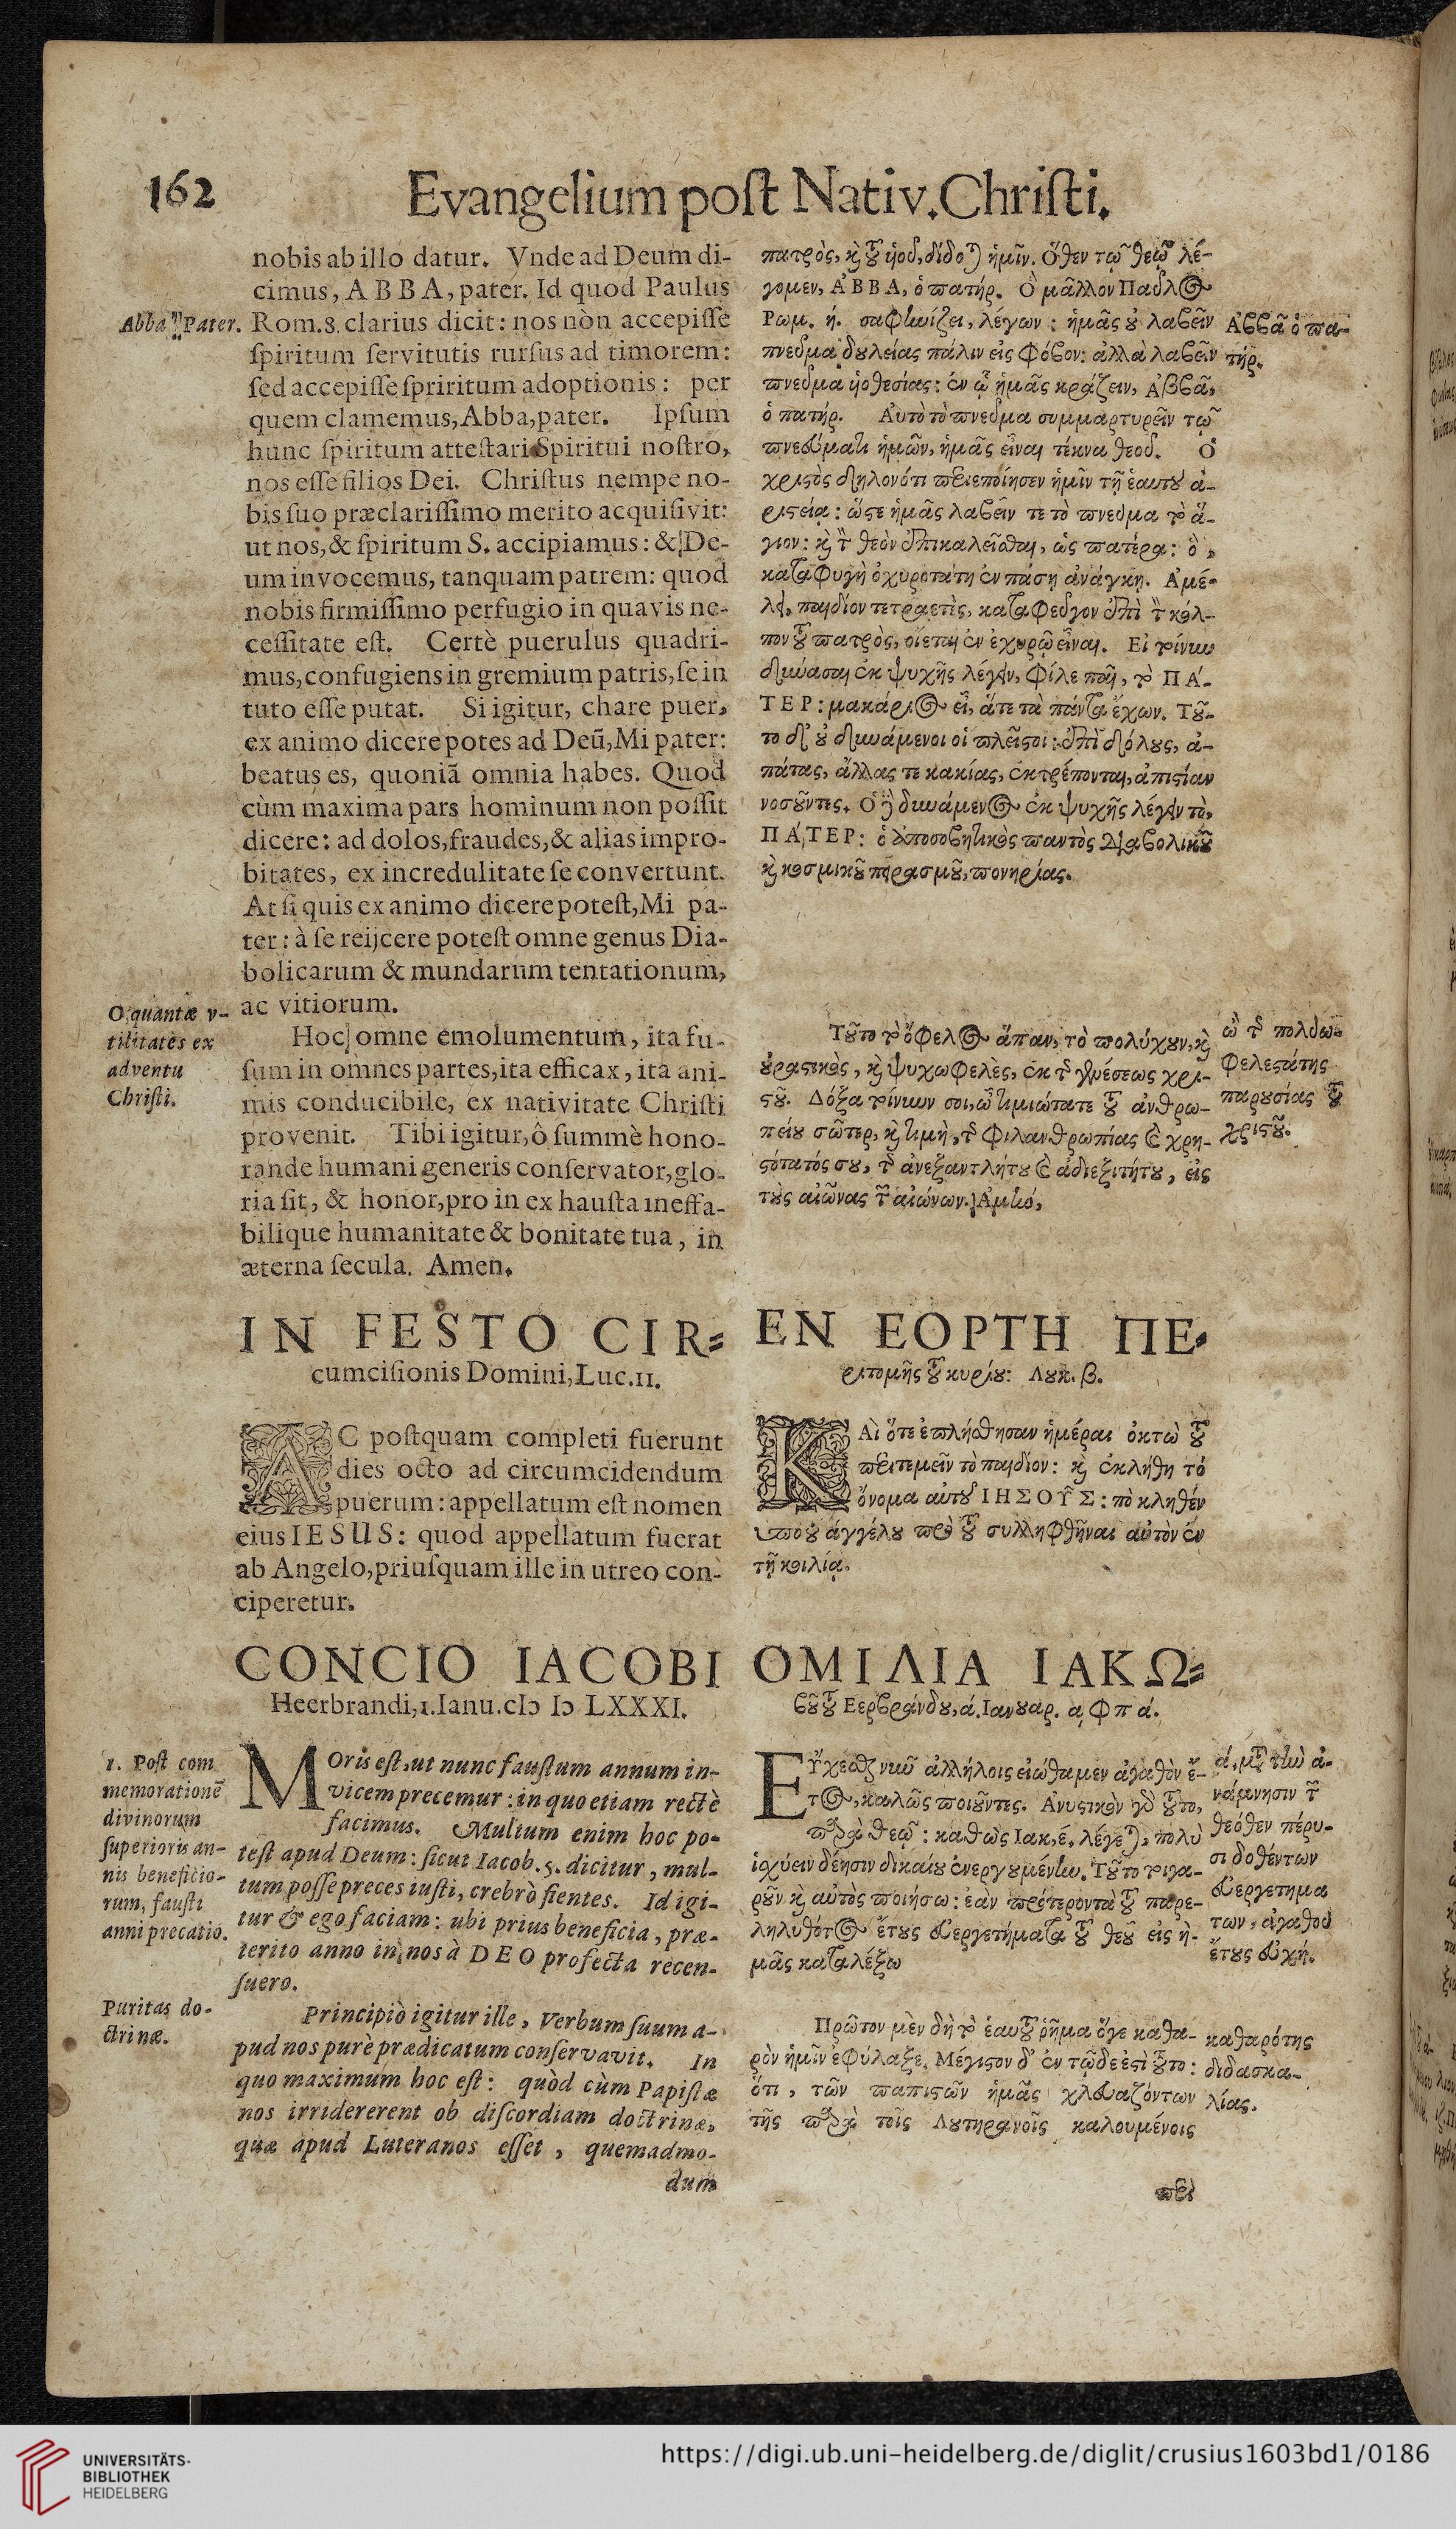 162
Evangelium poſt Nativ. Chriſti.
nobis ab illo datur. Vnde ad Deum di-
cimus, A B B A, pater. Id quod Paulus
Rom.8. clarius dicit: nos nòn accepiſſe
ſpiritum ſervitutis rurſus ad timorem:
ſed accepiſſe ſpriritum adoptionis: per
quem clamemus, Abba, pater. Ipſum
hunc ſpiritum atteſtari Spiritui noſtro,
nos eſſe filios Dei. Chriſtus nempe no-
bis ſuo præclariſſimo merito acquiſivit:
ut nos, & ſpiritum S. accipiamus: & De-
um invocemus, tanquam patrem: quod
nobis firmiſſimo perfugio in quavis ne-
ceſſitate eſt. Certè puerulus quadri-
mus, confugiens in gremium patris, ſe in
tuto eſſe putat. Si igitur, chare puer,
ex animo dicere potes ad Deū, Mi pater:
beatus es, quoniā omnia habes. Quod
cùm maxima pars hominum non poſſit
dicere: ad dolos, fraudes, & alias impro-
bitates, ex incredulitate ſe convertunt.
At ſi quis ex animo dicere poteſt, Mi pa-
ter: à ſe reijcere poteſt omne genus Dia-
bolicarum & mundarum tentationum,
ac vitiorum.
Hoc omne emolumentum, ita fu-
ſum in omnes partes, ita efficax, ita ani-
mis conducibile, ex nativitate Chriſti
provenit. Tibi igitur, ô ſummè hono-
rande humani generis conſervator, glo-
ria ſit, & honor, pro in ex hauſta ineffa-
bilique humanitate & bonitate tua, in
æterna ſecula. Amen.
Abba Pater.
O quantæ v-
tilitates ex
adventu
Chriſti.
πατρὸς, κὶ τοῦ ὑιοῦ, δίδοται ἡμῖν. Ὅθεν τῷ θεῷ λέ-
γομεν, ἈΒΒΑ, ὁ πατήρ. Ὃ μᾶλλον Παῦλος
Ρωμ. ή. σαφηνίζει, λέγων: ἡμᾶς οὐ λαβεῖν
πνεῦμα δουλείας πάλιν εἰς φόβον: ἀλλὰ λαβεῖν
πνεῦμα ὑιοθεσίας: ἐν ᾧ ἡμᾶς κράζειν, Ἀββᾶ,
ὁ πατήρ. Αυτὸ τὸ πνεῦμα συμμαρτυρεῖν τῷ
πνεύματι ἡμῶν, ἡμᾶς εἶναι τέκνα θεοῦ. Ὁ
χριστὸς δηλονότι περιεποίησεν ἡμῖν τῇ ἑαυτοῦ ἀ-
ριστείᾳ: ὥστε ἡμᾶς λαβεῖν τε τὸ πνεῦμα τὸ ἅ-
γιον: κὶ τὸν θεὸν ἐπικαλεῖσθαι, ὡς πατέρα: ὃ,
καταφυγὴ ὀχυροτάτη ἐν πάσῃ ἀνάγκῃ. Ἀμέ-
λει, παιδίον τετραετὲς, καταφεῦγον ἐπὶ τὸν κόλ-
πον τοῦ πατρὸς, οἴεται ἐν ἐχυρῷ εἶναι. Εἰ τοίνυν
δύνασαι ἐκ ψυχῆς λέγειν, φίλε παῖ, τὸ ΠΑ-
ΤΕΡ: μακάριος εἶ, ἅτε τὰ πάντα ἔχων. Τοῦ-
το δ' οὐ δυνάμενοι οἱ πλεῖστοι: ἐπὶ δόλους, ἀ-
πάτας, ἄλλας τε κακίας, ἐκτρέπονται, ἀπιστίαν
νοσοῦντες. Ὁ γὰρ δυνάμενος ἐκ ψυχῆς λέγειν τὸ,
ΠΑΤΕΡ: ὁ ἀποσοβητικὸς παντὸς διαβολικοῦ
κὶ κοσμικοῦ πειρασμοῦ, πονηρίας.
Ἀββᾶ ὁ πα-
τήρ.
Τοῦτο τὸ ὄφελος ἅπαν, τὸ πολύχουν, κὶ
δραστικὸς, κὶ ψυχωφελὲς, ἐκ τῆς γενέσεως χρι-
στοῦ. Δόξα τοίνυν σοι, ὦ τιμιώτατε τοῦ ἀνθρω-
πείου σῶτερ, κὶ τιμὴ, τῆς φιλανθρωπίας καὶ χρη-
στότατός σου, τῆς ἀνεξαντλήτου καὶ ἀδιεξιτήτου, εἰς
τοὺς αἰῶνας τῶν αἰώνων. Ἀμήν,
ὢ τῆς πολυω-
φελεστάτης
παρουσίας τοῦ
χριστοῦ.
IN FESTO CIR-
cumciſionis Domini, Luc.II.
AC poſtquam completi fuerunt
dies octo ad circumcidendum
puerum: appellatum eſt nomen
eius IESUS: quod appellatum fuerat
ab Angelo, priuſquam ille in utreo con-
ciperetur.
ΕΝ ΕΟΡΤΗ ΠΕ-
ριτομῆς τοῦ κυρίου: Λουκ. β.
ΚΑὶ ὅτε ἐπλήσθησαν ἡμέραι ὀκτὼ τοῦ
περιτεμεῖν τὸ παιδίον: κὶ ἐκλήθη τό
ὄνομα αὐτοῦ ΙΗΣΟΥΣ: τὸ κληθέν
ὑπὸ τοῦ ἀγγέλου πρὸ τοῦ συλληφθῆναι αὐτὸν ἐν
τῇ κοιλίᾳ.
CONCIO IACOBI
Heerbrandi, 1. Ianu. cIɔ Iɔ LXXXI.
MOris eſt, ut nunc fauſtum annum in-
vicem precemur: in quo etiam rectè
facimus. Multum enim hoc po-
teſt apud Deum: ſicut Iacob.5. dicitur, mul-
tum poſſe preces iuſti, crebrò fientes. Id igi-
tur & ego faciam: ubi prius beneficia, præ-
terito anno in nos à DEO profecta recen-
ſuero.
Principiò igitur ille, Verbum ſuum a-
pud nos purè prædicatum conſervavit. In
quo maximum hoc eſt: quòd cùm Papiſtæ
nos irridererent ob diſcordiam doctrinæ,
quæ apud Luteranos eſſet, quemadmo-
dum
1. Poſt com
memorationē
divinorum
ſuperioris an-
nis beneficio-
rum, fauſti
anni precatio.
Puritas do-
ctrinæ.
ΟΜΙΛΙΑ ΙΑΚΩ-
βου τοῦ Εερβράνδου, ά. Ιανουαρ. α φ π ά.
ΕΥχεσθαι νῦν ἀλλήλοις εἰώθαμεν ἀγαθὸν ἔ-
τος, καλῶς ποιοῦντες. Ἀνυστικὸν γὰρ τοῦτο,
παρὰ θεῷ: καθὼς Ιακ, έ, λέγεται, πολὺ
ἰσχύειν δέησιν δικαίου ἐνεργουμένην. Τοῦτο τοιγα-
ροῦν κὶ αὐτὸς ποιήσω: ἐὰν πρότερον τὰ τοῦ παρε-
ληλυθότος ἔτους εὐεργετήματα τοῦ θεοῦ εἰς ἡ-
μᾶς καταλέξω
Πρῶτον μὲν δὴ τὸ ἑαυτοῦ ῥῆμα ὅγε καθα-
ρὸν ἡμῖν ἐφύλαξε. Μέγιστον δ' ἐν τῷδε ἐστὶ τοῦτο:
ὅτι, τῶν παπιστῶν ἡμᾶς χλευαζόντων
τῆς παρὰ τοῖς Λουτηρανοῖς καλουμένοις
περὶ
ά, μετὰ τὴν ἀ-
νάμνησιν τῶν
θεόθεν πέρυ-
σι δοθέντων
εὐεργετημα
των, ἀγαθοῦ
ἔτους εὐχή.
καθαρότης
διδασκα-
λίας.
UNIVERSITÄTS-
BIBLIOTHEK
HEIDELBERG
https://digi.ub.uni-heidelberg.de/diglit/crusius1603bd1/0186